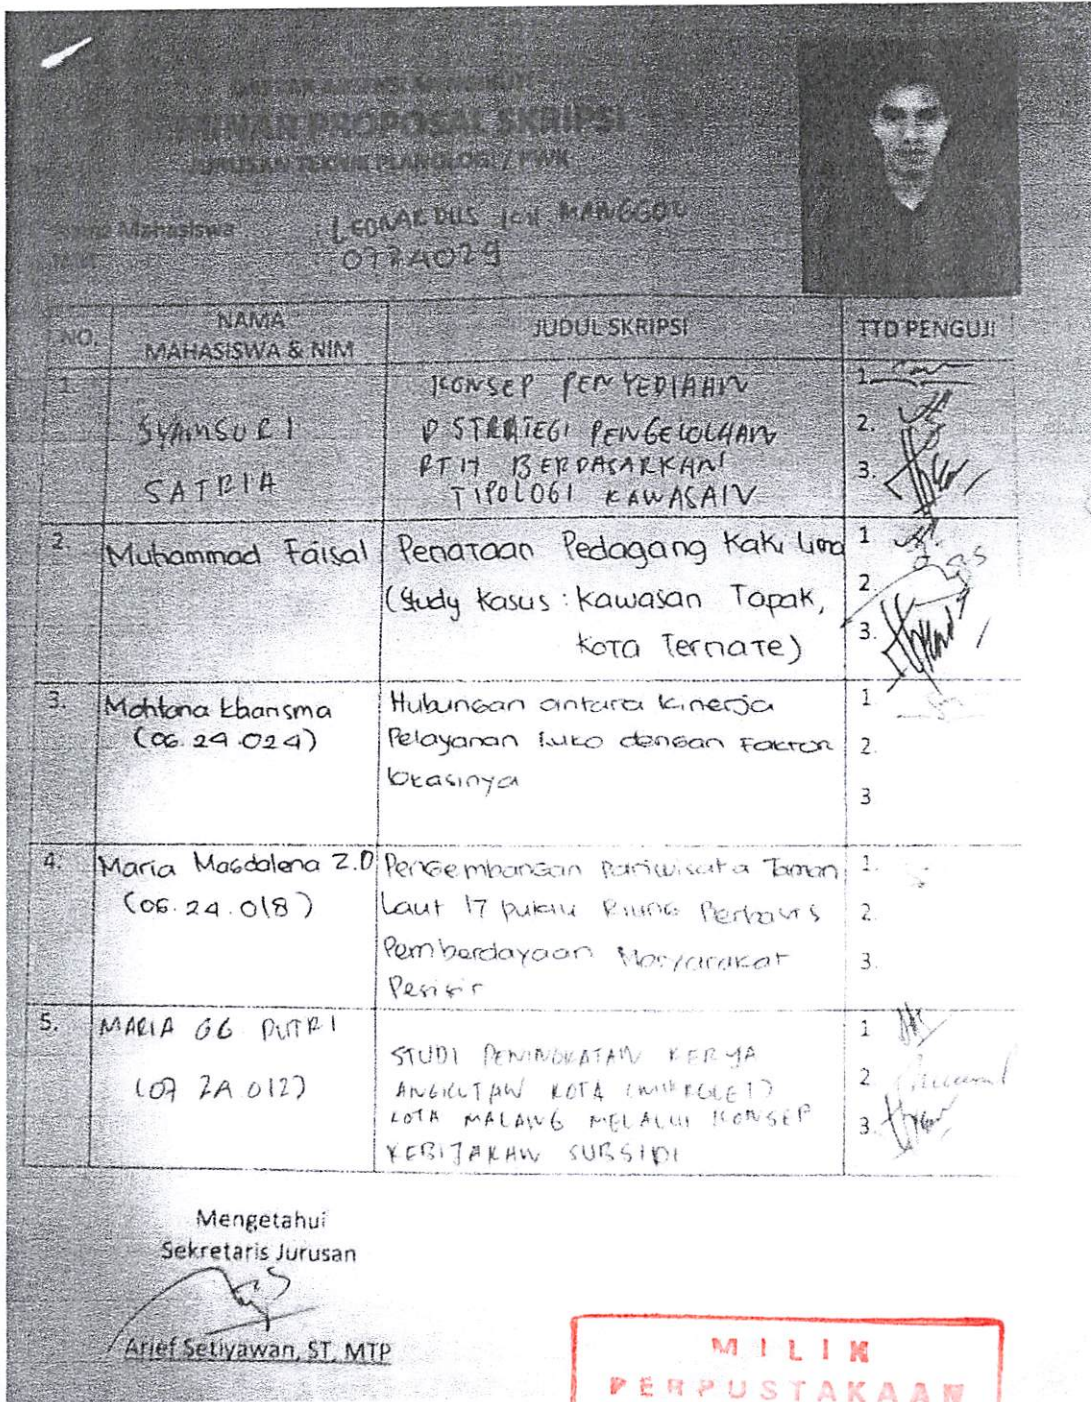 SEMINAR PROPOSAL SKRIPSI
JURUSAN TEKNIK PLANOLOGI / PWK
Nama Mahasiswa LEONARDUS MANGGOL
N I M 0724029
NO. NAMA MAHASISWA & NIM JUDUL SKRIPSI TTD PENGUJI
1. SYAMSURI SATRIA
KONSEP PENYEDIAAN
D STRATEGI PENGELOLAAN
RTH BERDASARKAN
TIPOLOGI KAWASAN
1.
2.
3.
2. Muhammad Faisal
Penataan Pedagang Kaki Lima
(Study Kasus : Kawasan Tapak,
Kota Ternate)
1
2.
3.
3. Kharisma
(06.24.024)
Hubungan antara kinerja
Pelayanan Ruko dengan Faktor
lokasinya
1
2.
3
4. Maria Magdalena Z.D
(06.24.018)
Pengembangan Pariwisata Taman
Laut 17 pulau Riung Berbasis
Pemberdayaan Masyarakat
Pesisir
1.
2.
3.
5. MARIA GG PUTRI
(07 24 012)
STUDI PENINGKATAN KERJA
ANGKUTAN KOTA (MIKROLET)
KOTA MALANG MELALUI KONSEP
KEBIJAKAN SUBSIDI
1
2
3.
Mengetahui
Sekretaris Jurusan
Arief Setiyawan, ST, MTP
MILIK
PERPUSTAKAAN